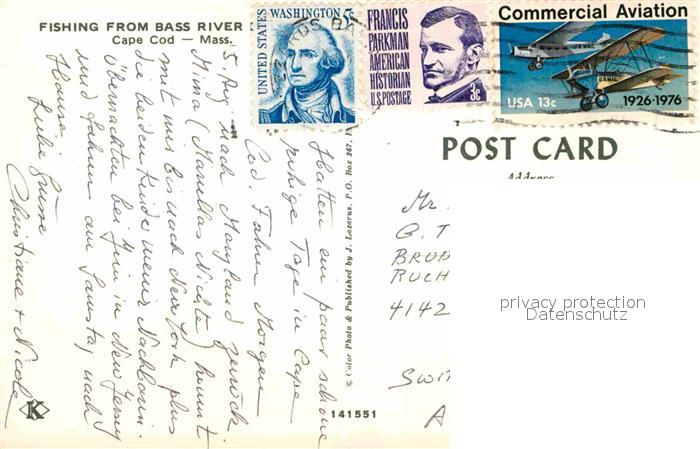 FISHING FROM BASS RIVER
Cape Cod — Mass.
UNITED STATES
WASHINGTON 5c
FRANCIS
PARKMAN
AMERICAN
HISTORIAN
U.S. POSTAGE
3c
Commercial Aviation
U.S. MAIL
U.S. MAIL
USA 13c
1926-1976
POST CARD
Address
5. Aug.
Hatten ein paar schöne
ruhige Tage in Cape
Cod. Fahren Morgen
nach Maryland zurück.
Nima (Manillas Nichte) kommt
mit uns bis nach New York plus
die beiden Kinder meiner Nachbarin.
Übernachten bei Jim in New Jersey
und fahren am Samstag nach
Hause.
Liebe Grüsse
Christiane + Nicole
© Color Photo & Published by J. Lazarus, P.O. Box 367,
141551
K
Mr.
G. T
BRUD
RUCH
4142
SWIT
privacy protection
Datenschutz